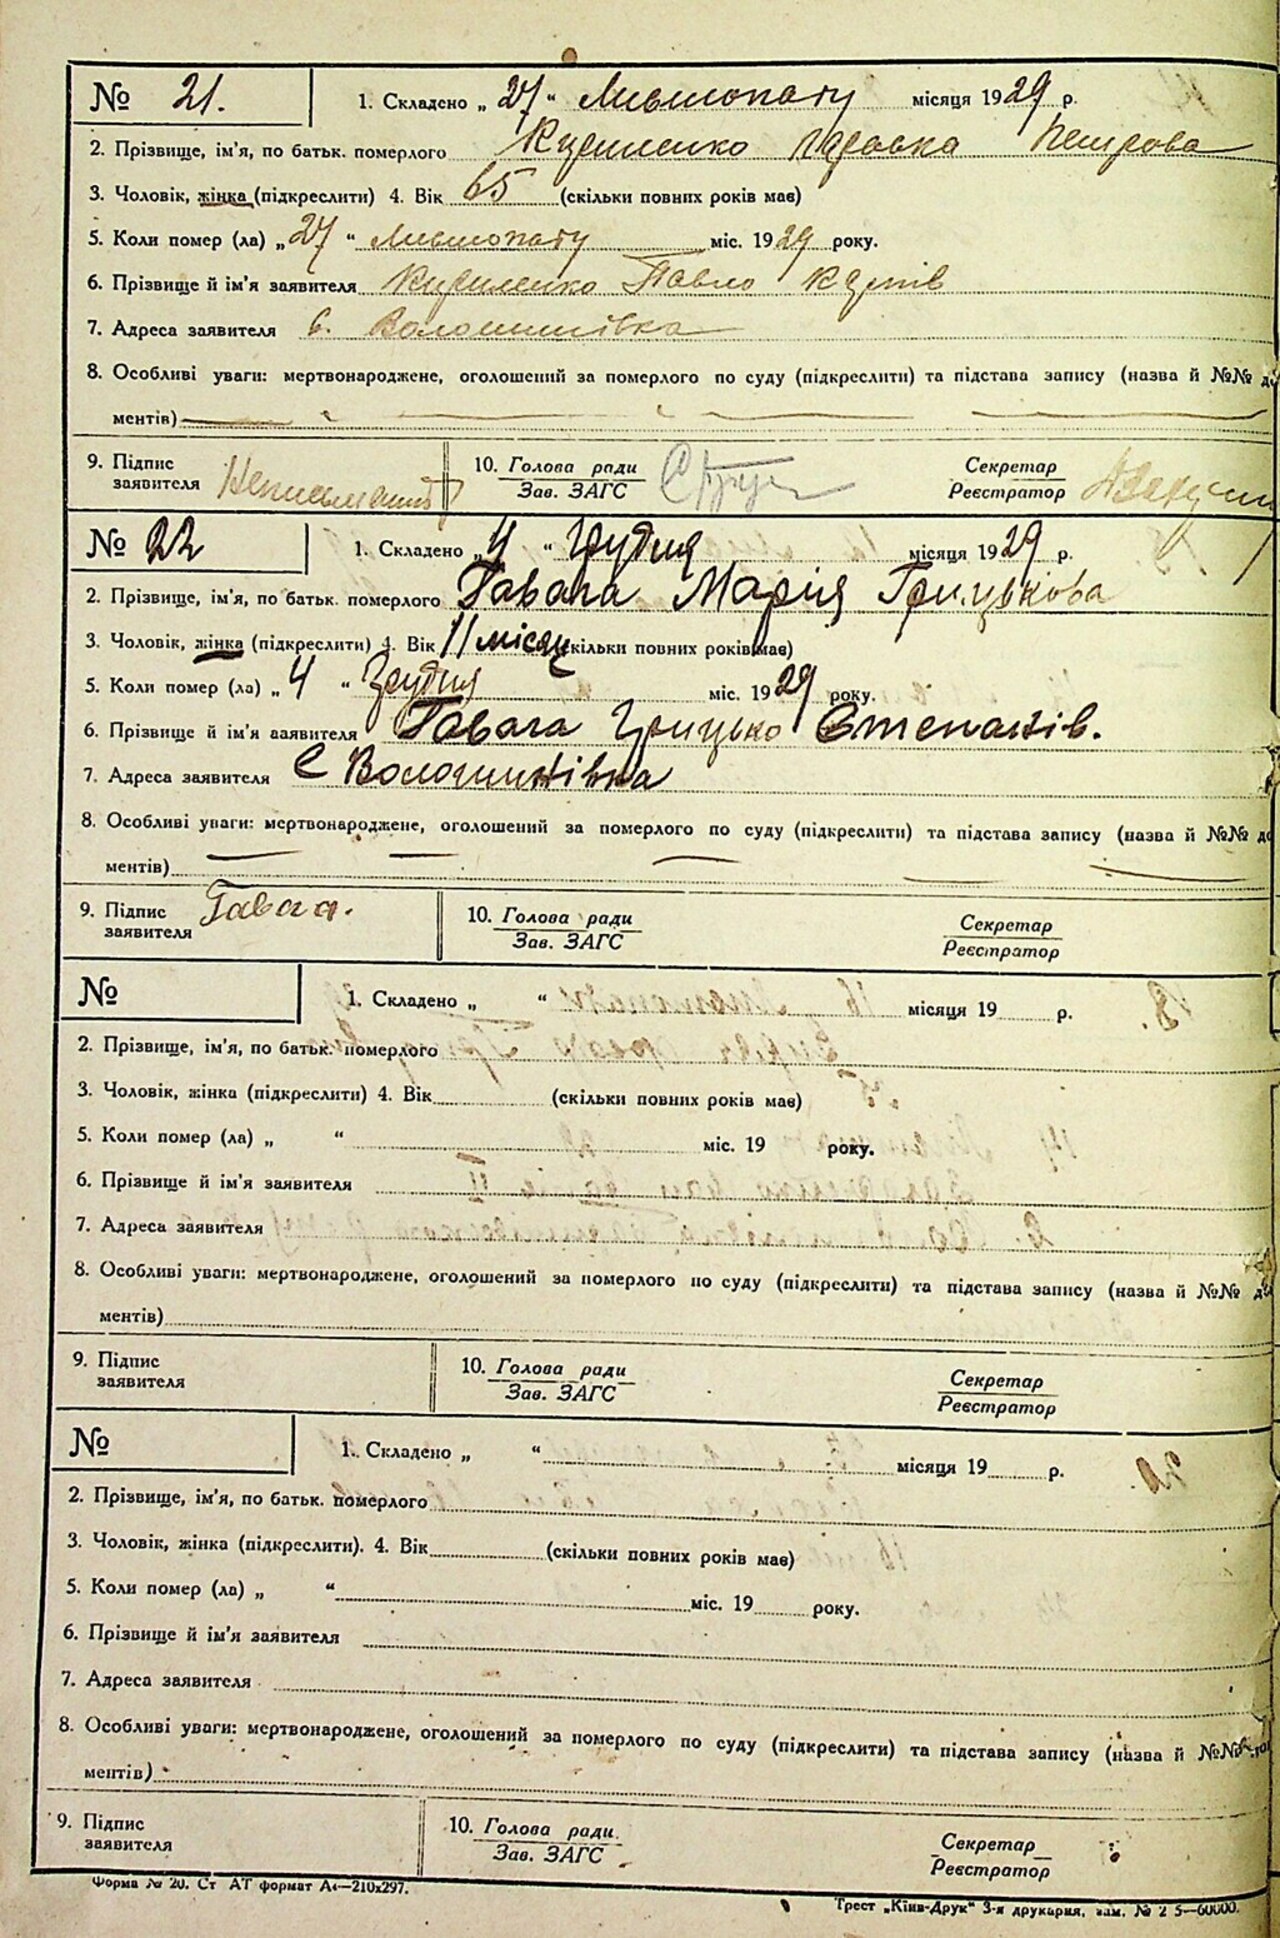 № 21.
1. Складено „ 27 “ Листопаду місяця 1929 р.
2. Прізвище, ім'я, по батьк. померлого Кириленко Параска Петрова
3. Чоловік, жінка (підкреслити) 4. Вік 65 (скільки повних років має)
5. Коли помер (ла) „ 27 “ Листопаду міс. 1929 року.
6. Прізвище й ім'я заявителя Кириленко Павло
7. Адреса заявителя с. Волошинівка
8. Особливі уваги: мертвонароджене, оголошений за померлого по суду (підкреслити) та підстава запису (назва й №№ до
ментів)
9. Підпис заявителя Неписьменний
10. Голова ради
Зав. ЗАГС
Секретар
Реєстратор
№ 22
1. Складено „ 4 “ Грудня місяця 1929 р.
2. Прізвище, ім'я, по батьк. померлого Гавага Марія Грицькова
3. Чоловік, жінка (підкреслити) 4. Вік 11 місяц (скільки повних років має)
5. Коли помер (ла) „ 4 “ Грудня міс. 1929 року.
6. Прізвище й ім'я заявителя Гавага Грицько Степанів.
7. Адреса заявителя С Волошинівка
8. Особливі уваги: мертвонароджене, оголошений за померлого по суду (підкреслити) та підстава запису (назва й №№ до
ментів)
9. Підпис заявителя Гавага.
10. Голова ради
Зав. ЗАГС
Секретар
Реєстратор
№
1. Складено „ “ місяця 19 р.
2. Прізвище, ім'я, по батьк. померлого
3. Чоловік, жінка (підкреслити) 4. Вік (скільки повних років має)
5. Коли помер (ла) „ “ міс. 19 року.
6. Прізвище й ім'я заявителя
7. Адреса заявителя
8. Особливі уваги: мертвонароджене, оголошений за померлого по суду (підкреслити) та підстава запису (назва й №№ до
ментів)
9. Підпис заявителя
10. Голова ради
Зав. ЗАГС
Секретар
Реєстратор
№
1. Складено „ “ місяця 19 р.
2. Прізвище, ім'я, по батьк. померлого
3. Чоловік, жінка (підкреслити). 4. Вік (скільки повних років має)
5. Коли помер (ла) „ “ міс. 19 року.
6. Прізвище й ім'я заявителя
7. Адреса заявителя
8. Особливі уваги: мертвонароджене, оголошений за померлого по суду (підкреслити) та підстава запису (назва й №№
ментів)
9. Підпис заявителя
10. Голова ради
Зав. ЗАГС
Секретар
Реєстратор
Форма № 20. Ст АТ формат А4—210х297.
Трест „Київ-Друк“ 3-я друкарня, зам. № 2 5—60000.